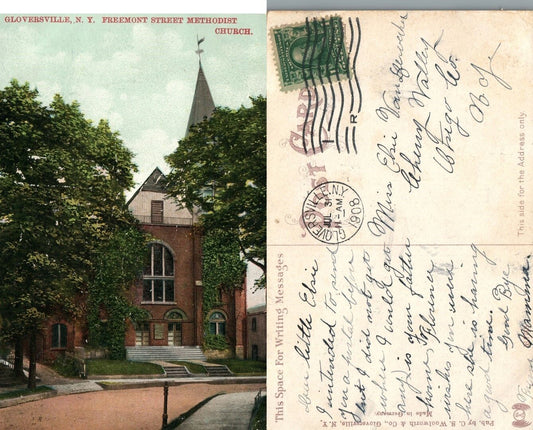 GLOVERSVILLE, N. Y. FREEMONT STREET METHODIST
CHURCH.
POST CARD
GLOVERSVILLE, N.Y.
JUL 31
11-AM
1908
Miss Elsie
Cherry Valley
Otsego Co.
N. Y.
This side for the Address only.
This Space For Writing Messages
Dear little Elsie
I intended to send
you a postal before
but I did not get
where I could get
any is your father
home Elinor
wishes you were
here she is having
a good time
Good Bye
from Mamma
Pub. by C. B. Woolworth & Co., Gloversville, N. Y.
Made in Germany.